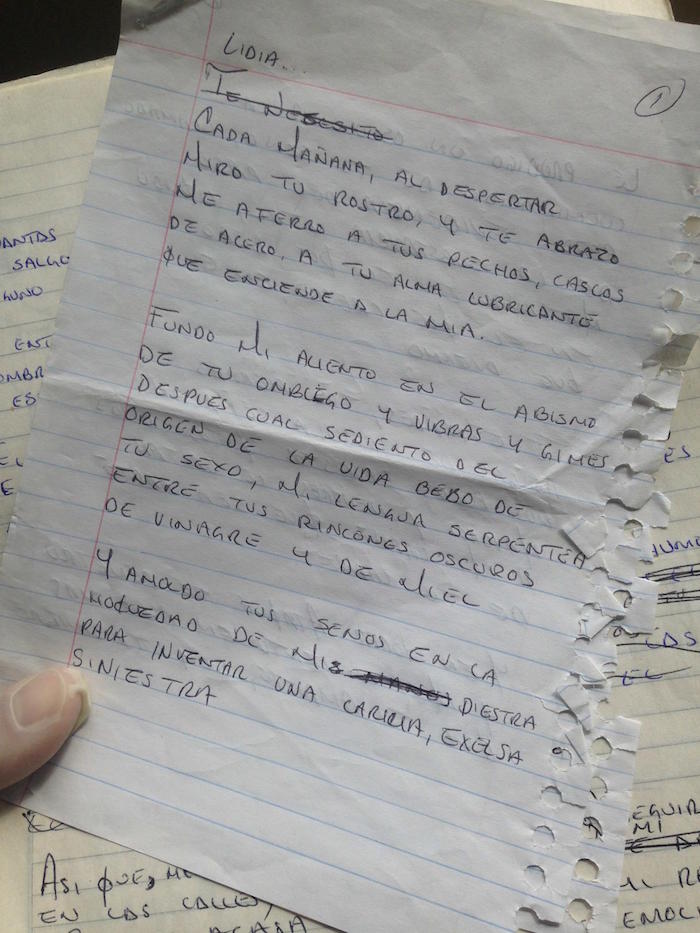 LIDIA...
1
TE NESESITO
CADA MAÑANA, AL DESPERTAR
MIRO TU ROSTRO, Y TE ABRAZO
ME AFERRO A TUS PECHOS, CASCOS
DE ACERO, A TU ALMA LUBRICANTE
QUE ENCIENDE A LA MIA.
FUNDO MI ALIENTO EN EL ABISMO
DE TU OMBLEGO Y VIBRAS Y GIMES
DESPUES CUAL SEDIENTO DEL
ORIGEN DE LA VIDA BEBO DE
TU SEXO, MI LENGUA SERPENTEA
ENTRE TUS RINCONES OSCUROS
DE VINAGRE Y DE MIEL
Y AMOLDO TUS SENOS EN LA
HOQUEDAD DE MIS MANOS DIESTRA
PARA INVENTAR UNA CARICIA, EXELSA
SINIESTRA
ANTAS
SALGO
GUNO
ENT
OMBR
ES
EL
E
ES
HUMO
LOS
EL
EGUIR
MI
MI R
EMOCI
ASI QUE, ME
EN LAS CALLES,